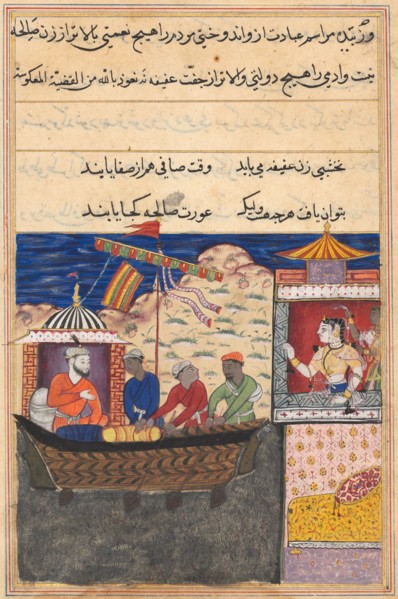 و زیبد مراسم عبادت از و اند وختی مرد را هیچ نعمتی بالاتر از زن صالحه
نیست و آدمی را هیچ دولتی والاتر از جفت عفیفه نه نعوذ بالله من القضیة المعکوسة
نخشبی زن عفیفه می باید وقت صافی هم از صفا یابند
بتوان یافت هر چه هست ولیک عورت صالحه کجا یابند